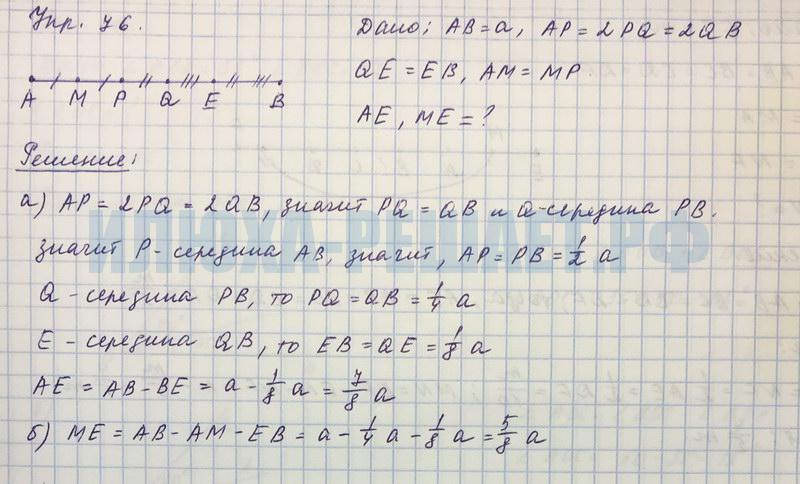 Упр. 76.
Дано: AB = a, AP = 2PQ = 2QB
QE = EB, AM = MP
AE, ME = ?
A M P Q E B
Решение:
а) AP = 2PQ = 2QB, значит PQ = QB и Q-середина PB.
значит P-середина AB, значит, AP = PB = 1/2 a
Q - середина PB, то PQ = QB = 1/4 a
E - середина QB, то EB = QE = 1/8 a
AE = AB - BE = a - 1/8 a = 7/8 a
б) ME = AB - AM - EB = a - 1/4 a - 1/8 a = 5/8 a
ИЛЮХА-РЕШАЕТ.РФ